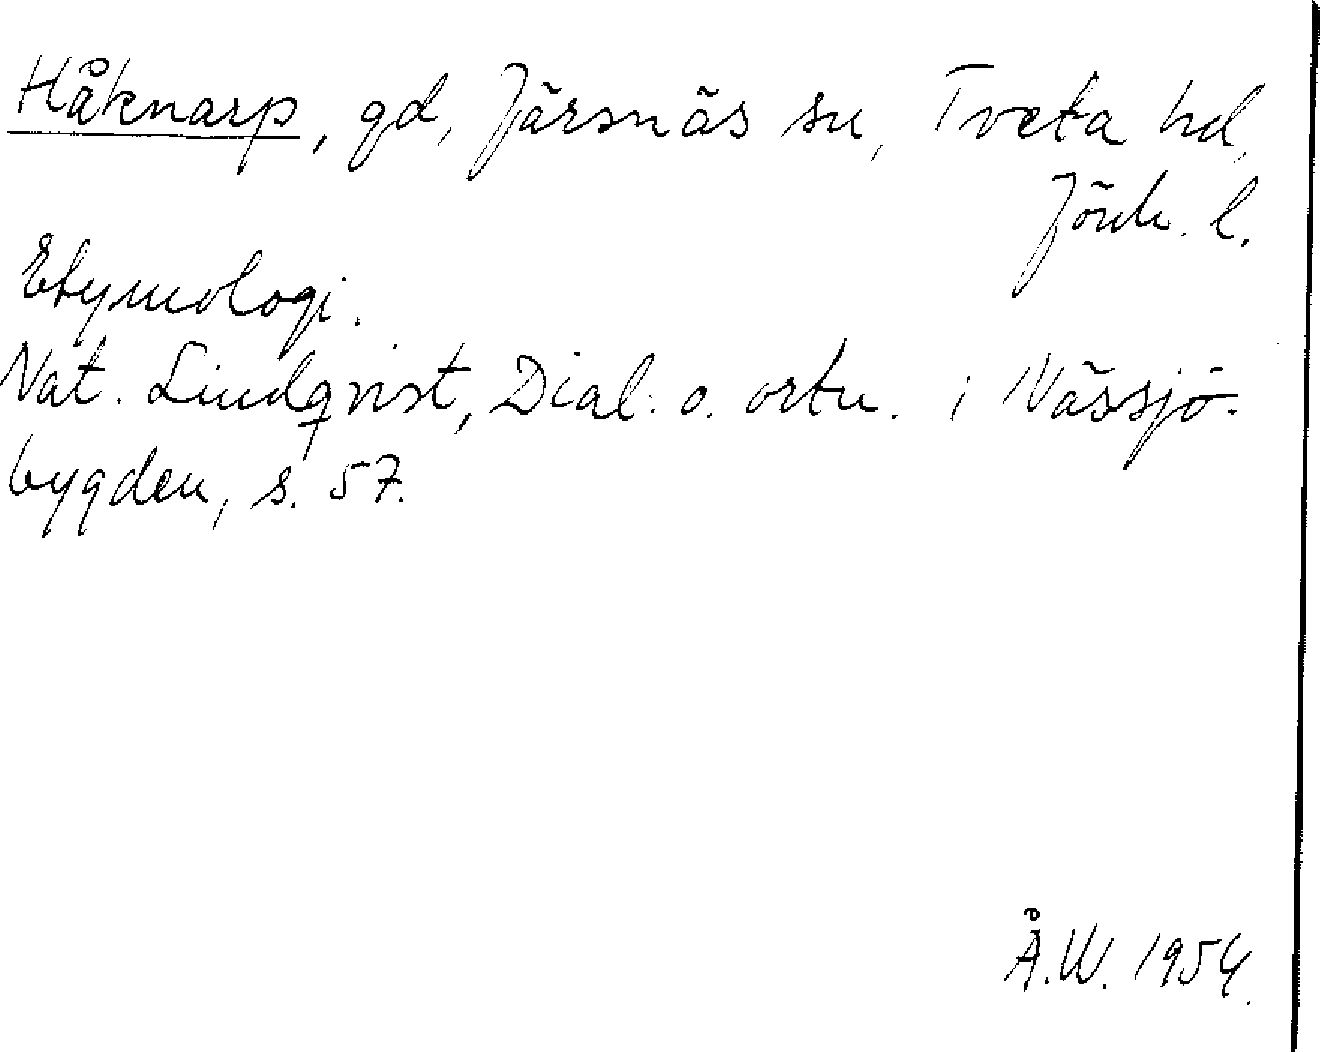 Håknarp, gd, Järsnäs sn, Tveta hd,
Jönk. l.
Etymologi.
Nat. Lindqvist, Dial. o. ortn. i Nässjö-
bygden, s. 57.
Å.W. 1954.